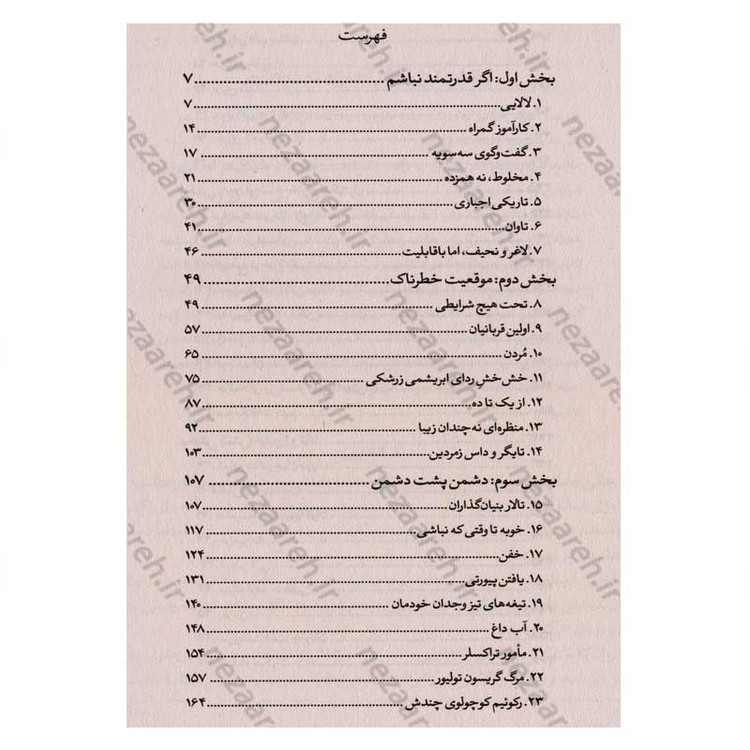 فهرست
بخش اول: اگر قدرتمند نباشم ........ ۷
۱. لالایی ........ ۷
۲. کارآموز گمراه ........ ۱۴
۳. گفت‌وگوی سه‌سویه ........ ۱۷
۴. مخلوط، نه همزده ........ ۲۱
۵. تاریکی اجباری ........ ۳۰
۶. تاوان ........ ۴۱
۷. لاغر و نحیف، اما باقابلیت ........ ۴۶
بخش دوم: موقعیت خطرناک ........ ۴۹
۸. تحت هیچ شرایطی ........ ۴۹
۹. اولین قربانیان ........ ۵۷
۱۰. مُردن ........ ۶۵
۱۱. خش خشِ ردای ابریشمی زرشکی ........ ۷۵
۱۲. از یک تا ده ........ ۸۷
۱۳. منظره‌ای نه چندان زیبا ........ ۹۲
۱۴. تایگر و داس زمردین ........ ۱۰۳
بخش سوم: دشمن پشت دشمن ........ ۱۰۷
۱۵. تالار بنیان‌گذاران ........ ۱۰۷
۱۶. خوبه تا وقتی که نباشی ........ ۱۱۷
۱۷. خفن ........ ۱۲۴
۱۸. یافتن پیورتی ........ ۱۳۱
۱۹. تیغه‌های تیز وجدان خودمان ........ ۱۴۰
۲۰. آب داغ ........ ۱۴۸
۲۱. مأمور تراکسلر ........ ۱۵۴
۲۲. مرگ گریسون تولیور ........ ۱۵۷
۲۳. رکوئیم کوچولوی چندش ........ ۱۶۴
nezaareh.ir